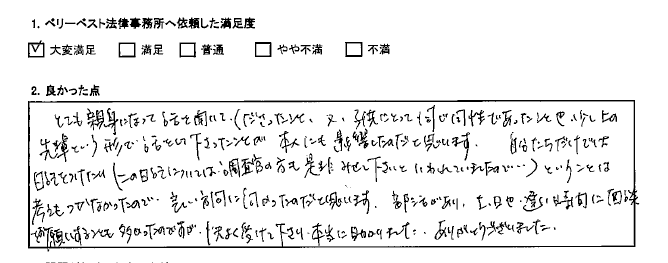 1. ベリーベスト法律事務所へ依頼した満足度
大変満足 満足 普通 やや不満 不満
2. 良かった点
とても親身になって話を聞いて、くださったこと、又、子供にとって同じ同性であったことや少し上の
先輩という形で話をして下さったことが本人にも影響したのだと思います。 自分たちだけでは
日記をつけたり(この日記については調査官の方も是非みせて下さいといわれていましたので…)ということは
考えもつかなかったので、良い方向に向かったのだと思います。部活があり、土日や遅い時間に面談を
お願いすることも多かったのですが、快よく受けて下さり、本当に助かりました。ありがとうございました。